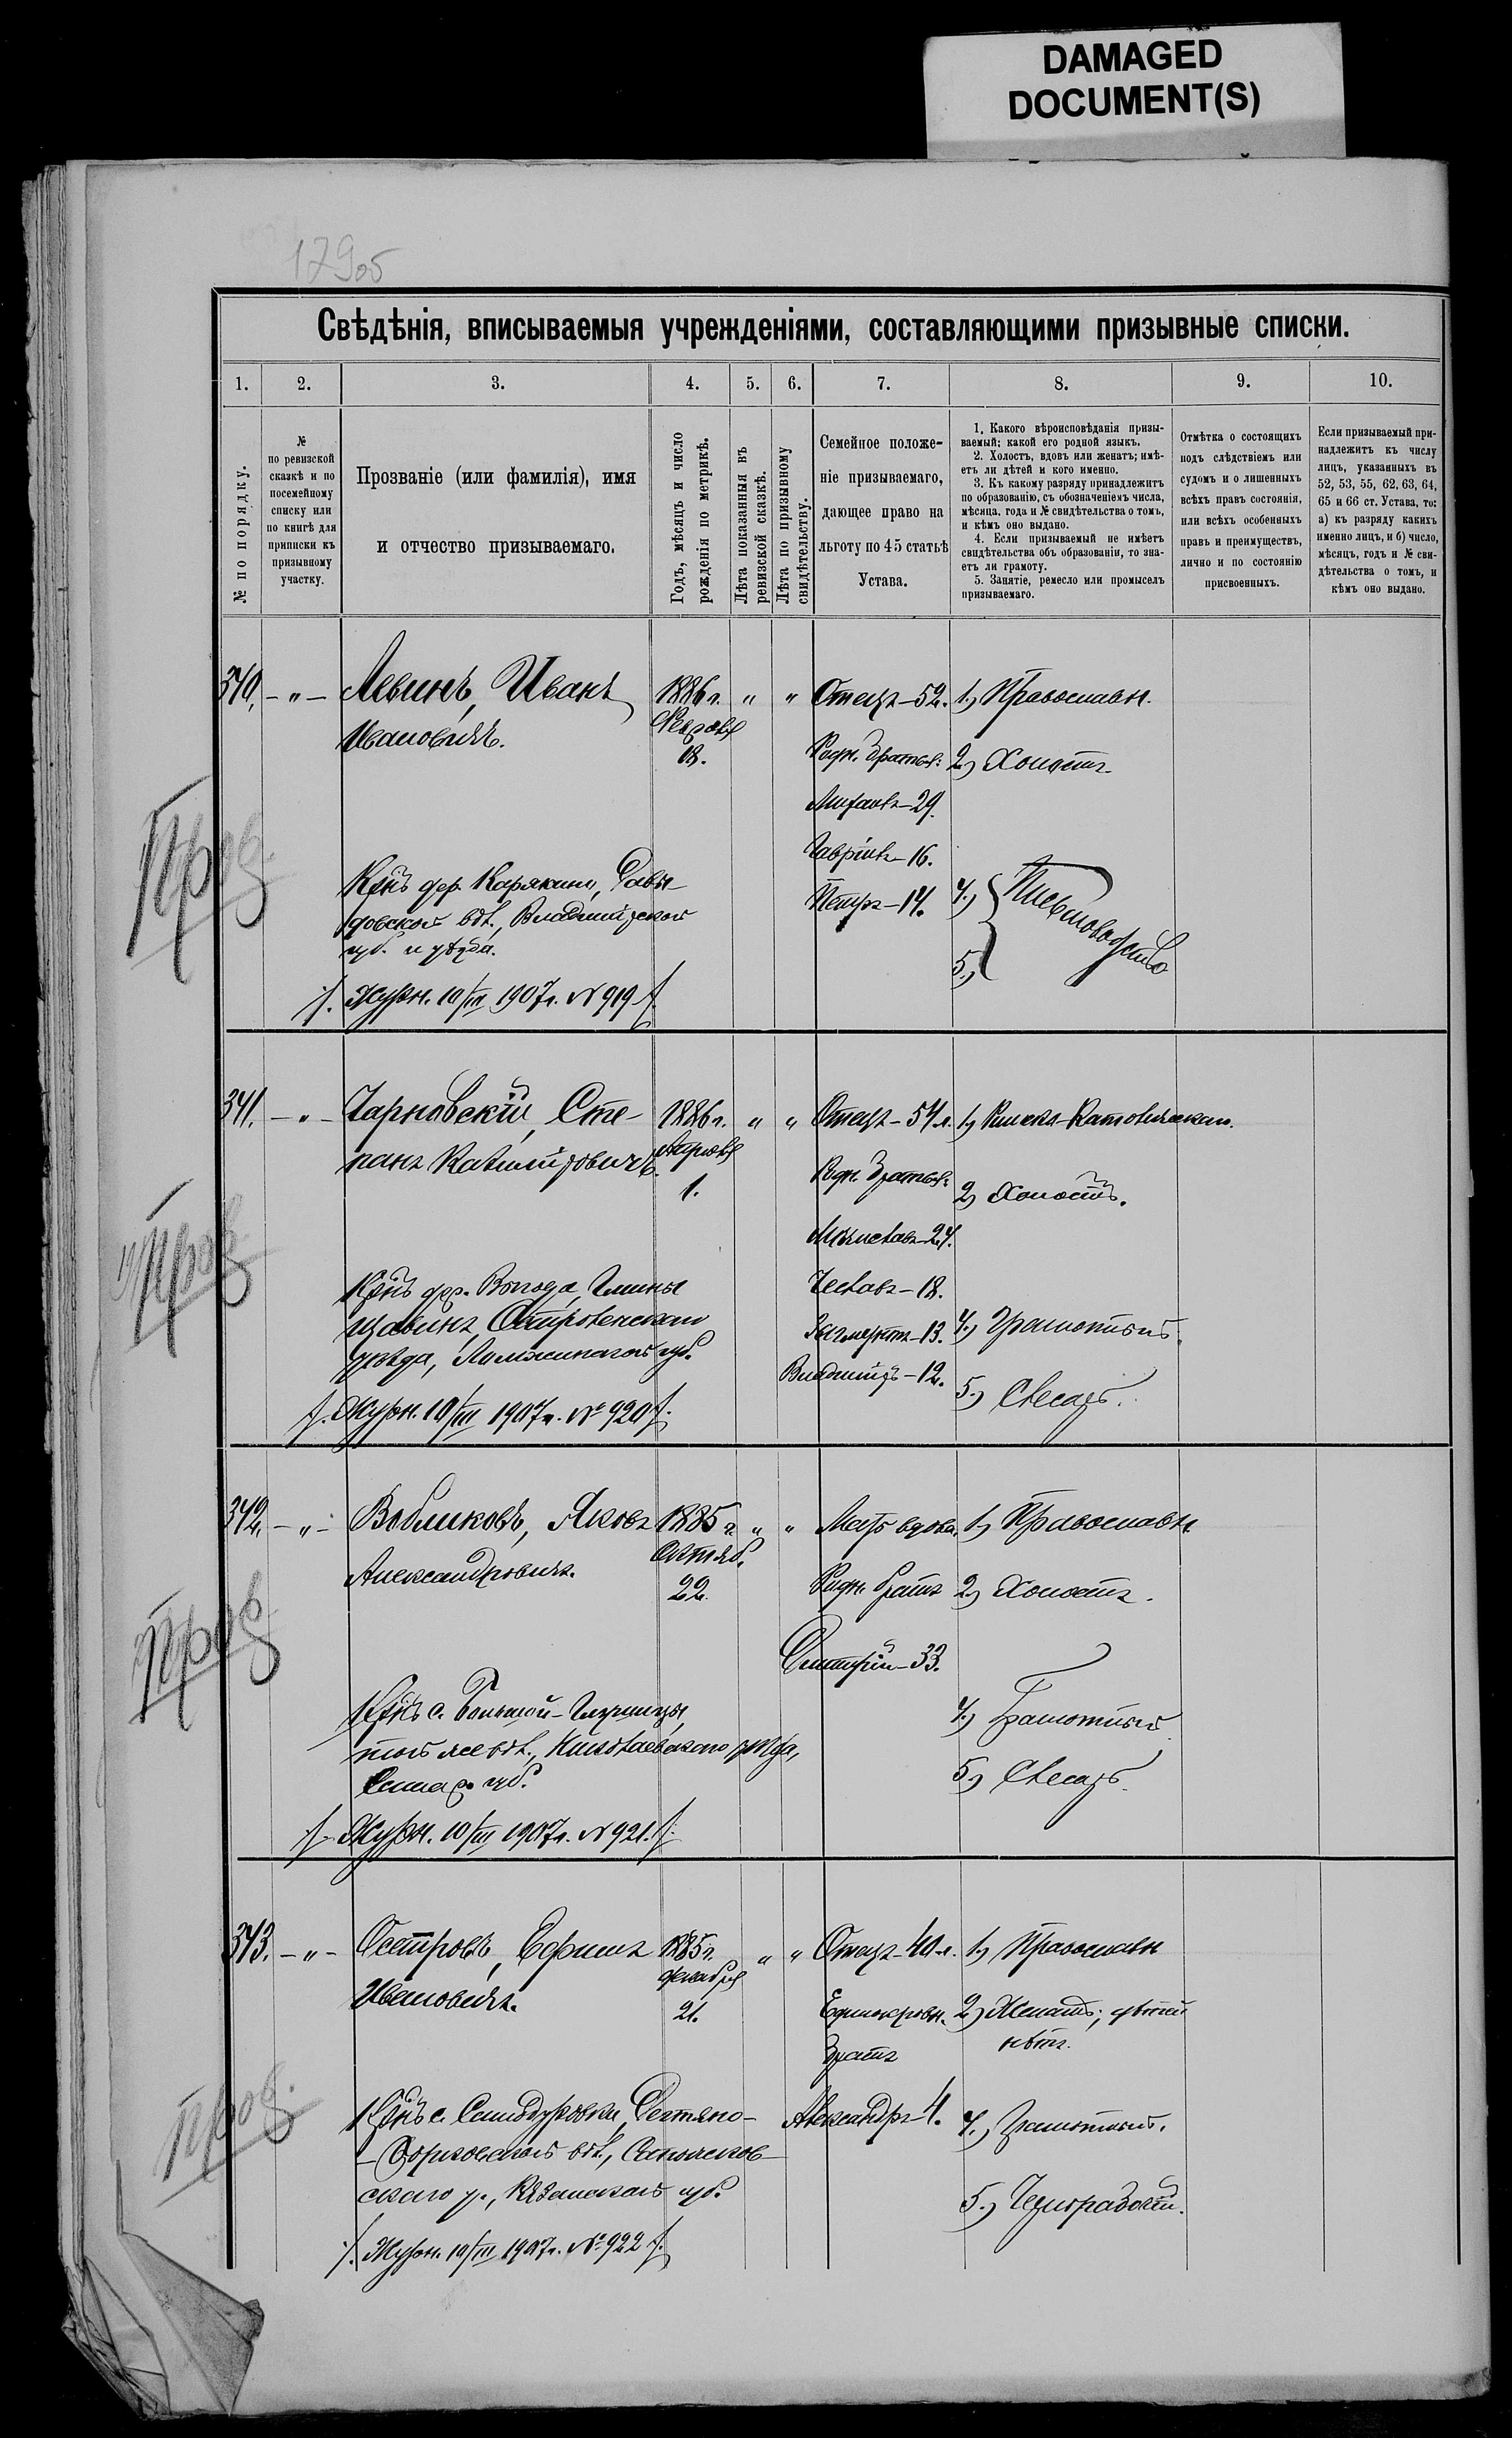 DAMAGED
DOCUMENT(S)
17905
Свѣдѣнія, вписываемыя учрежденіями, составляющими призывные списки.
1. 2. 3. 4. 5. 6. 7. 8. 9. 10.
№ по порядку.
№
по ревизской
сказкѣ и по
посемейному
списку или
по книгѣ для
приписки къ
призывному
участку.
Прозваніе (или фамилія), имя
и отчество призываемаго.
Годъ, мѣсяцъ и число
рожденія по метрикѣ.
Лѣта показанныя въ
ревизской сказкѣ.
Лѣта по призывному
свидѣтельству.
Семейное положе-
ніе призываемаго,
дающее право на
льготу по 45 статьѣ
Устава.
1. Какого вѣроисповѣданія призы-
ваемый; какой его родной языкъ.
2. Холостъ, вдовъ или женатъ; имѣ-
етъ ли дѣтей и кого именно.
3. Къ какому разряду принадлежитъ
по образованію, съ обозначеніемъ числа,
мѣсяца, года и № свидѣтельства о томъ,
и кѣмъ оно выдано.
4. Если призываемый не имѣетъ
свидѣтельства объ образованіи, то зна-
етъ ли грамоту.
5. Занятіе, ремесло или промыселъ
призываемаго.
Отмѣтка о состоящихъ
подъ слѣдствіемъ или
судомъ и о лишенныхъ
всѣхъ правъ состоянія,
или всѣхъ особенныхъ
правъ и преимуществъ,
лично и по состоянію
присвоенныхъ.
Если призываемый при-
надлежитъ къ числу
лицъ, указанныхъ въ
52, 53, 55, 62, 63, 64,
65 и 66 ст. Устава, то:
а) къ разряду какихъ
именно лицъ, и б) число,
мѣсяцъ, годъ и № сви-
дѣтельства о томъ, и
кѣмъ оно выдано.
340. - " - Левинъ, Иванъ 1886 г. " " Отецъ - 52. 1) Православн.
Ивановичъ. Февраля
18. Родн. братья: 2) Холостъ.
Михаилъ - 29.
Гавріилъ - 16.
Пров.
Кр-нъ дер. Карякино, Давы-
довской вол., Владимірской Петръ - 14. 4)
губ. и уѣзда.
5)
Журн. 10/III 1907 г. № 919
341. - " - Чарновскій, Сте- 1886 г. " " Отецъ - 54 л. 1) Римско-Католическаго.
панъ Казиміровичъ. Апрѣля
1. Родн. братья: 2) Холостъ.
Мечиславъ - 24.
Пров.
Кр-нъ дер. Гмины Чеславъ - 18.
Островскаго Зигмунтъ - 13. 4) Грамотный.
уѣзда, Ломжинской губ. Владиміръ - 12.
5) Слесарь.
Журн. 10/III 1907 г. № 920
342. - " - Вобликовъ, Яковъ 1885 г. " " Мать вдова. 1) Православн.
Александровичъ. Октяб.
22. Родн. братъ 2) Холостъ.
Дмитрій - 33.
Пров.
Кр-нъ с. Большой-Глушицы, 4) Грамотный
той же вол., Николаевскаго уѣзда,
Самар. губ. 5) Слесарь.
Журн. 10/III 1907 г. № 921.
343. - " - Осетровъ, Ефимъ 1885 г. " " Отецъ - 40 л. 1) Православн
Ивановичъ. Декабря
21. Единокровн. 2) Женатъ; дѣтей
братъ нѣтъ.
Пров.
Кр-нъ с. Александръ - 4. 4) Грамотный.
- Борковской вол., Сапожков-
скаго у., Рязанской губ. 5) Чернорабочій.
Журн. 10/III 1907 г. № 922